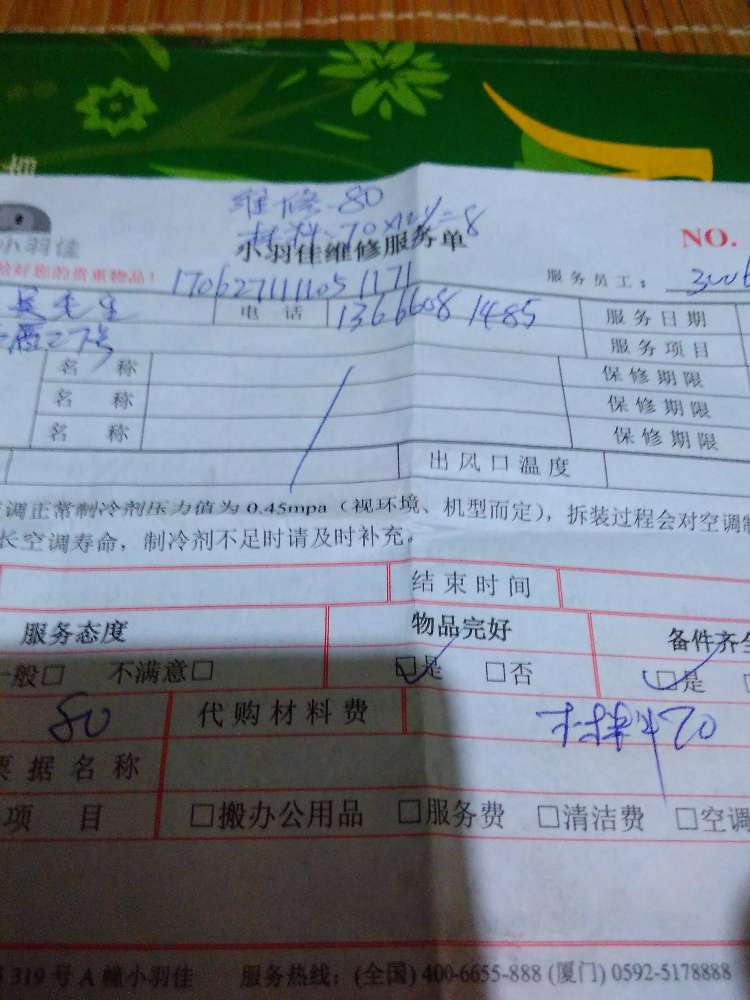 维修-80
小羽佳
小羽佳维修服务单
NO.
恰好您的贵重物品！
170627111105 1171
服务员工：
吴先生
电话
136 6608 1485
服务日期
27号
服务项目
名称
保修期限
名称
保修期限
名称
保修期限
出风口温度
调正常制冷剂压力值为 0.45mpa（视环境、机型而定），拆装过程会对空调制
长空调寿命，制冷剂不足时请及时补充。
结束时间
服务态度
物品完好
备件齐全
一般□ 不满意□
□是 □否
□是
80
代购材料费
材料70
票据名称
项目
□搬办公用品 □服务费 □清洁费 □空调
319号A幢小羽佳 服务热线：(全国) 400-6655-888 (厦门) 0592-5178888